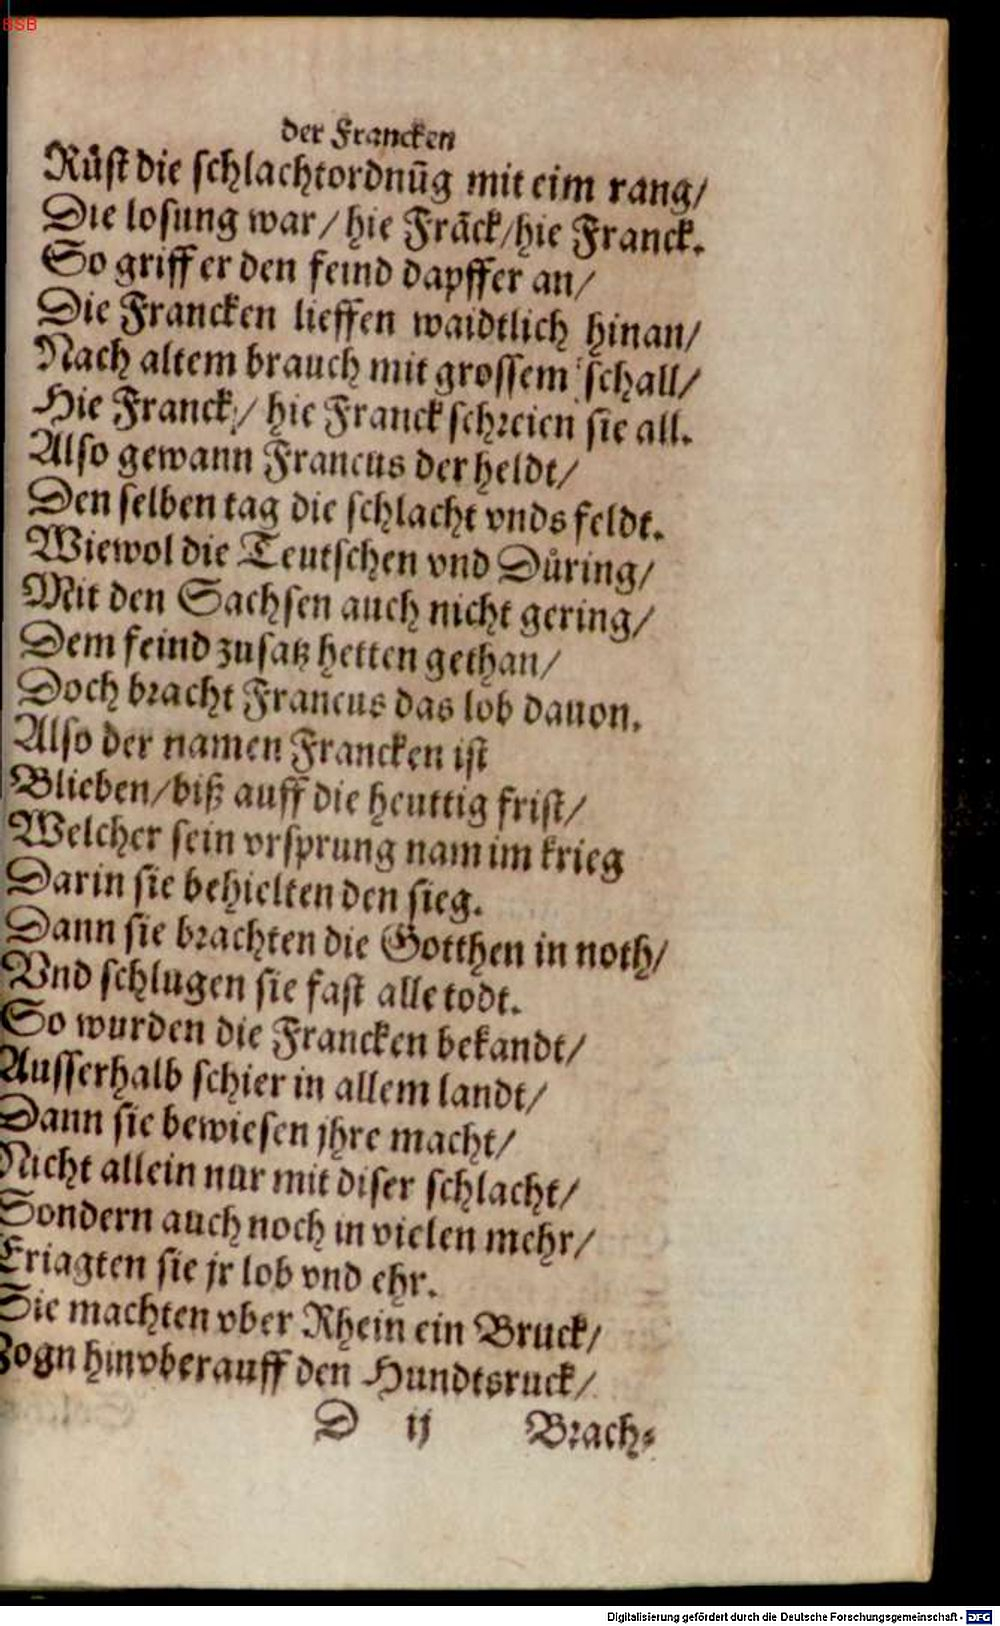 BSB
der Francken
Rüst die schlachtordnūg mit eim rang/
Die losung war/ hie Frāck/hie Franck.
So griff er den feind dapffer an/
Die Francken lieffen waidtlich hinan/
Nach altem brauch mit grossem schall/
Hie Franck/ hie Franck schreien sie all.
Also gewann Francus der heldt/
Den selben tag die schlacht vnds feldt.
Wiewol die Teutschen vnd Důring/
Mit den Sachsen auch nicht gering/
Dem feind zusatz hetten gethan/
Doch bracht Francus das lob dauon.
Also der namen Francken ist
Blieben/biß auff die heuttig frist/
Welcher sein vrsprung nam im krieg
Darin sie behielten den sieg.
Dann sie brachten die Gotthen in noth/
Vnd schlugen sie fast alle todt.
So wurden die Francken bekandt/
Ausserhalb schier in allem landt/
Dann sie bewiesen jhre macht/
Nicht allein nur mit diser schlacht/
Sondern auch noch in vielen mehr/
Eriagten sie jr lob vnd ehr.
Sie machten vber Rhein ein Bruck/
Zogn hinvber auff den Hundtsruck/
D ij Brach-
Digitalisierung gefördert durch die Deutsche Forschungsgemeinschaft - DFG